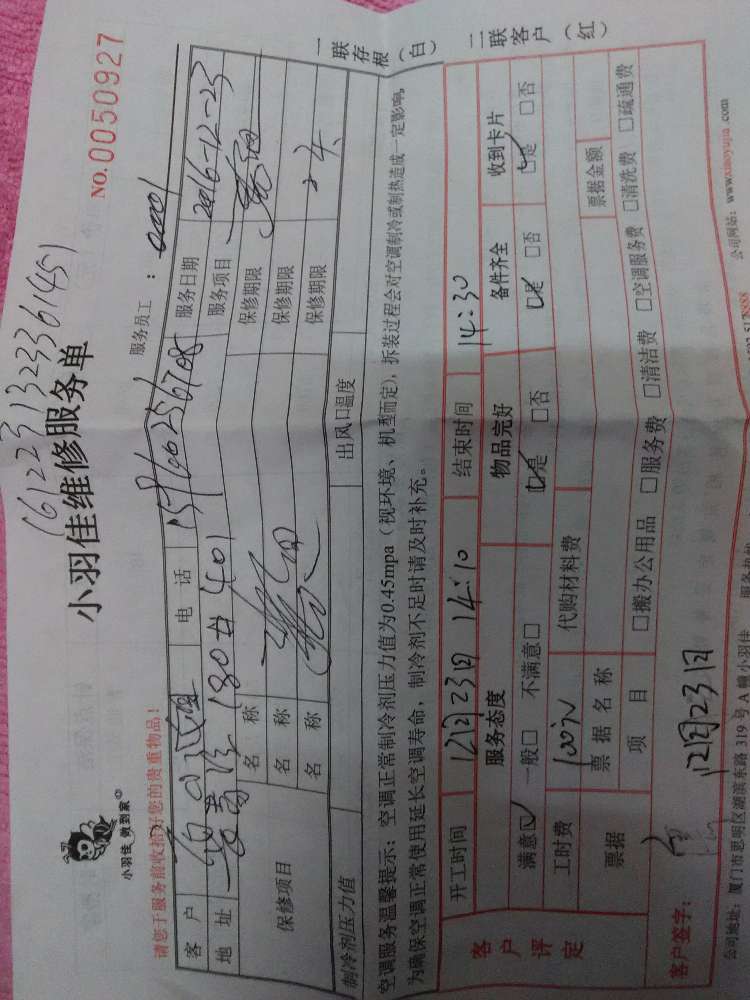 1612231323361451
小羽佳维修服务单
NO.0050927
小羽佳 做到家
请您于服务前收拾好您的贵重物品!
服务员工:0001
客户 电话 服务日期 2016-12-23
地址 180 401 服务项目
保修项目 名称 保修期限
名称 保修期限
名称 保修期限
制冷剂压力值 出风口温度
空调服务温馨提示:空调正常制冷剂压力值为0.45mpa(视环境、机型而定),拆装过程会对空调制冷或制热造成一定影响,
为确保空调正常使用延长空调寿命,制冷剂不足时请及时补充。
一联存根(白) 二联客户(红)
客户评定
开工时间 12月23日 14:10 结束时间 14:30
服务态度 物品完好 备件齐全 收到卡片
满意☑ 一般□ 不满意□ ☑是 □否 ☑是 □否 ☑是 □否
工时费 100元 代购材料费
票据 票据名称 票据金额
项目 □搬办公用品 □服务费 □清洁费 □空调服务费 □清洗费 □疏通费
客户签字: 12月23日
公司地址:厦门市思明区湖滨东路 319 号 A 幢小羽佳 公司网站:www.xiaoyujia.com